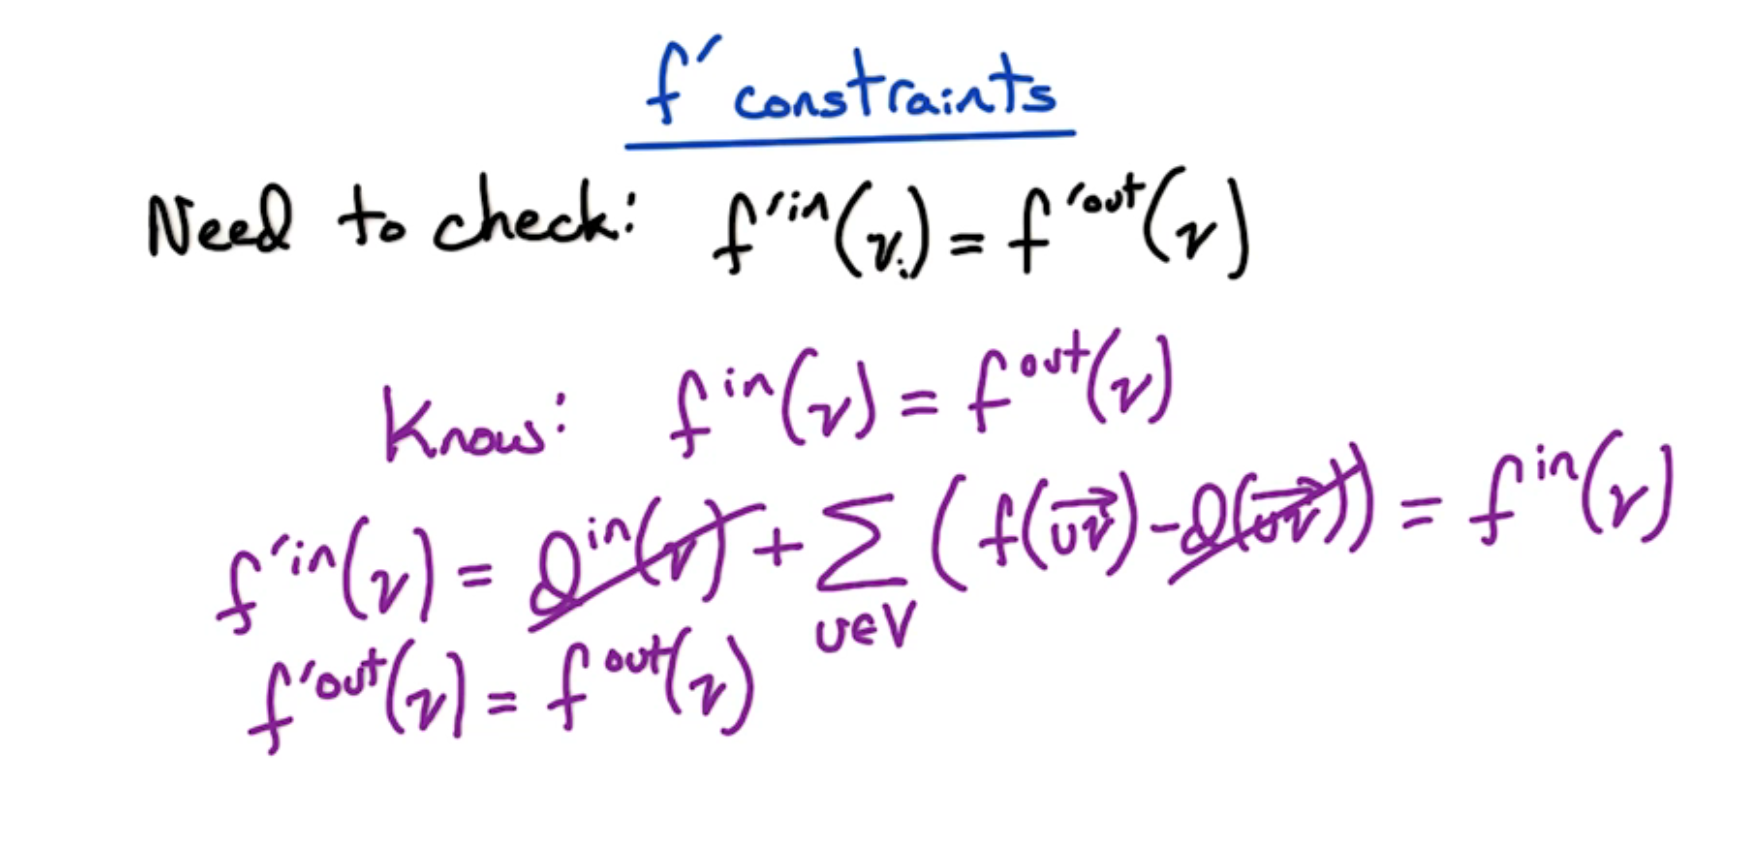 f′ constraints
Need to check: f′ⁱⁿ(v) = f′ᵒᵘᵗ(v)
Know: fⁱⁿ(v) = fᵒᵘᵗ(v)
f′ⁱⁿ(v) = dⁱⁿ(v) + ∑_{u∈V} (f(u⃗v⃗) - d(u⃗v⃗)) = fⁱⁿ(v)
f′ᵒᵘᵗ(v) = fᵒᵘᵗ(v)